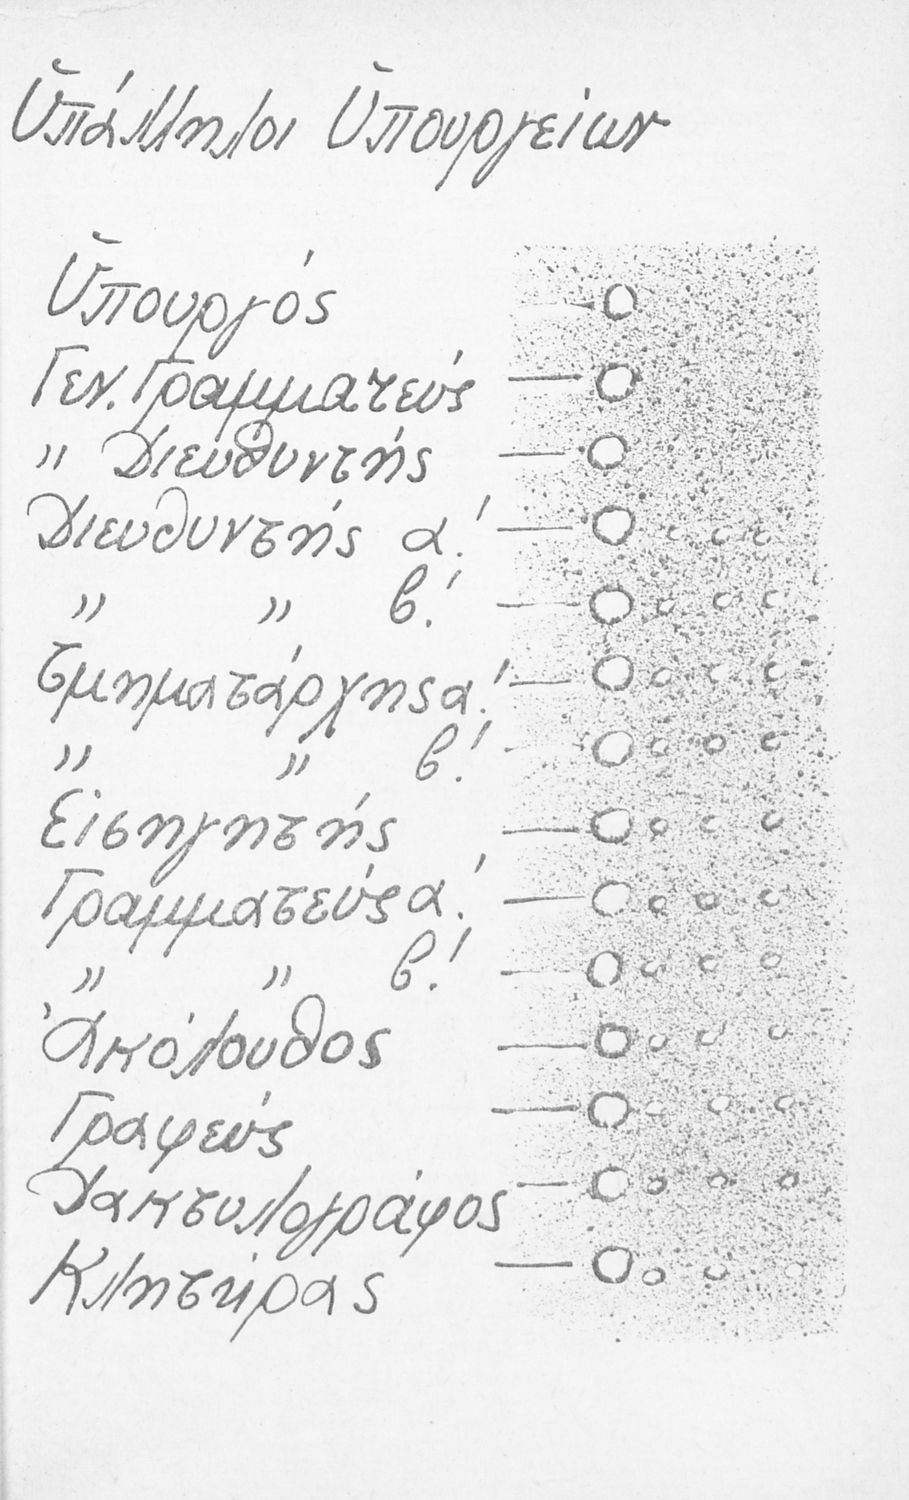 Ὑπάλληλοι Ὑπουργείων
Ὑπουργός
Γεν. Γραμματεύς
„ Διευθυντής
Διευθυντής α.'
„ „ β.'
Τμηματάρχης α.'
„ „ β.'
Εἰσηγητής
Γραμματεύς α.'
„ „ β.'
Ἀκόλουθος
Γραφεύς
Δακτυλογράφος
Κλητήρας